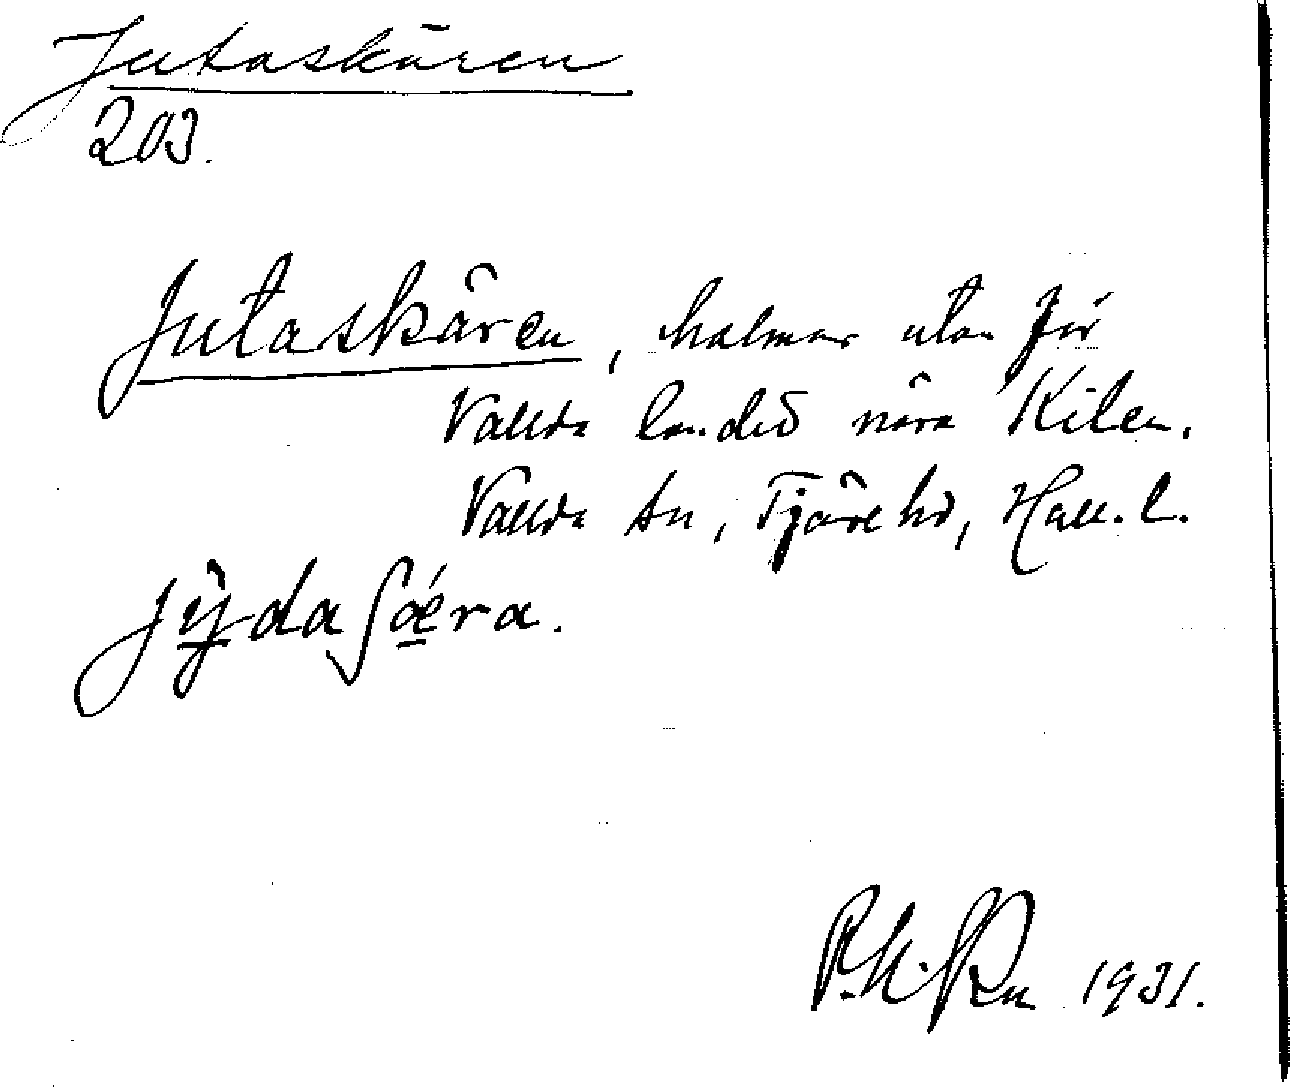 Jutaskären
203.
Jutaskären, holmar utan för
Vallda landet nära Kilen.
Vallda sn, Fjäre hd, Hall. l.
jýdaʃǽra.
1931.